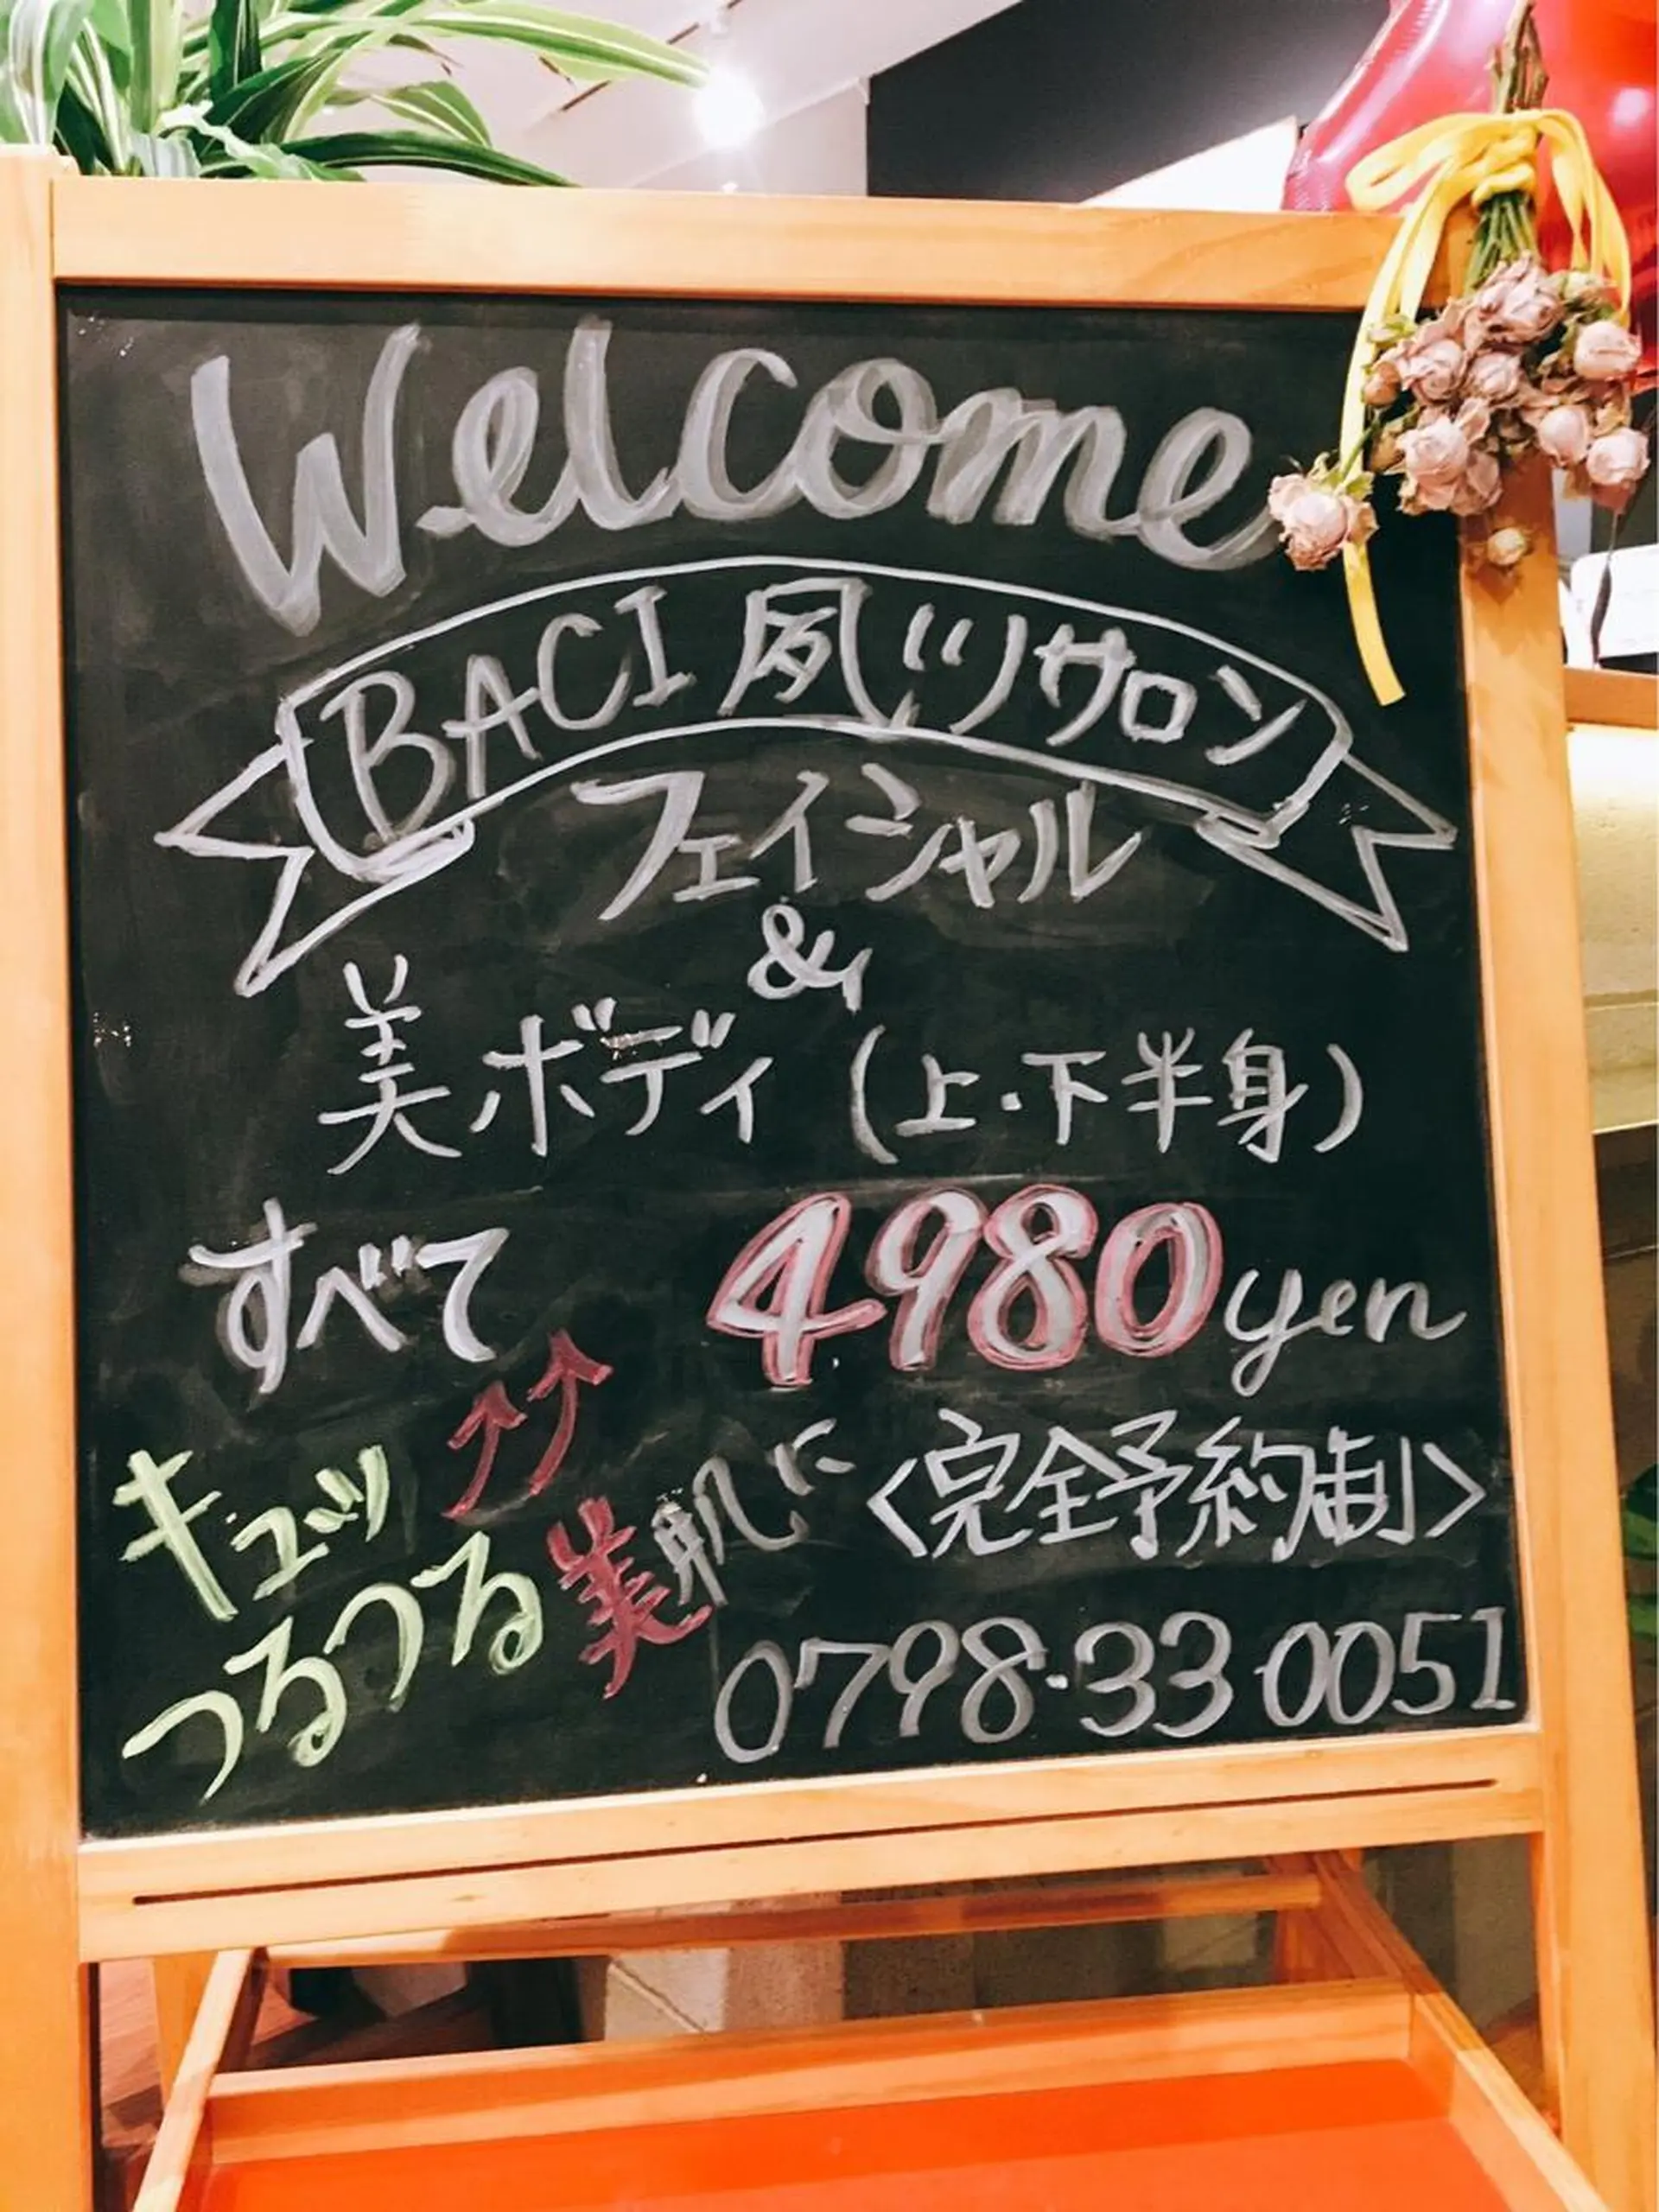 Welcome
BACI 夙川サロン
フェイシャル
&
美ボディ (上・下半身)
すべて 4980yen
キュッ↗↗
つるつる美肌に
〈完全予約制〉
0798・33・0051